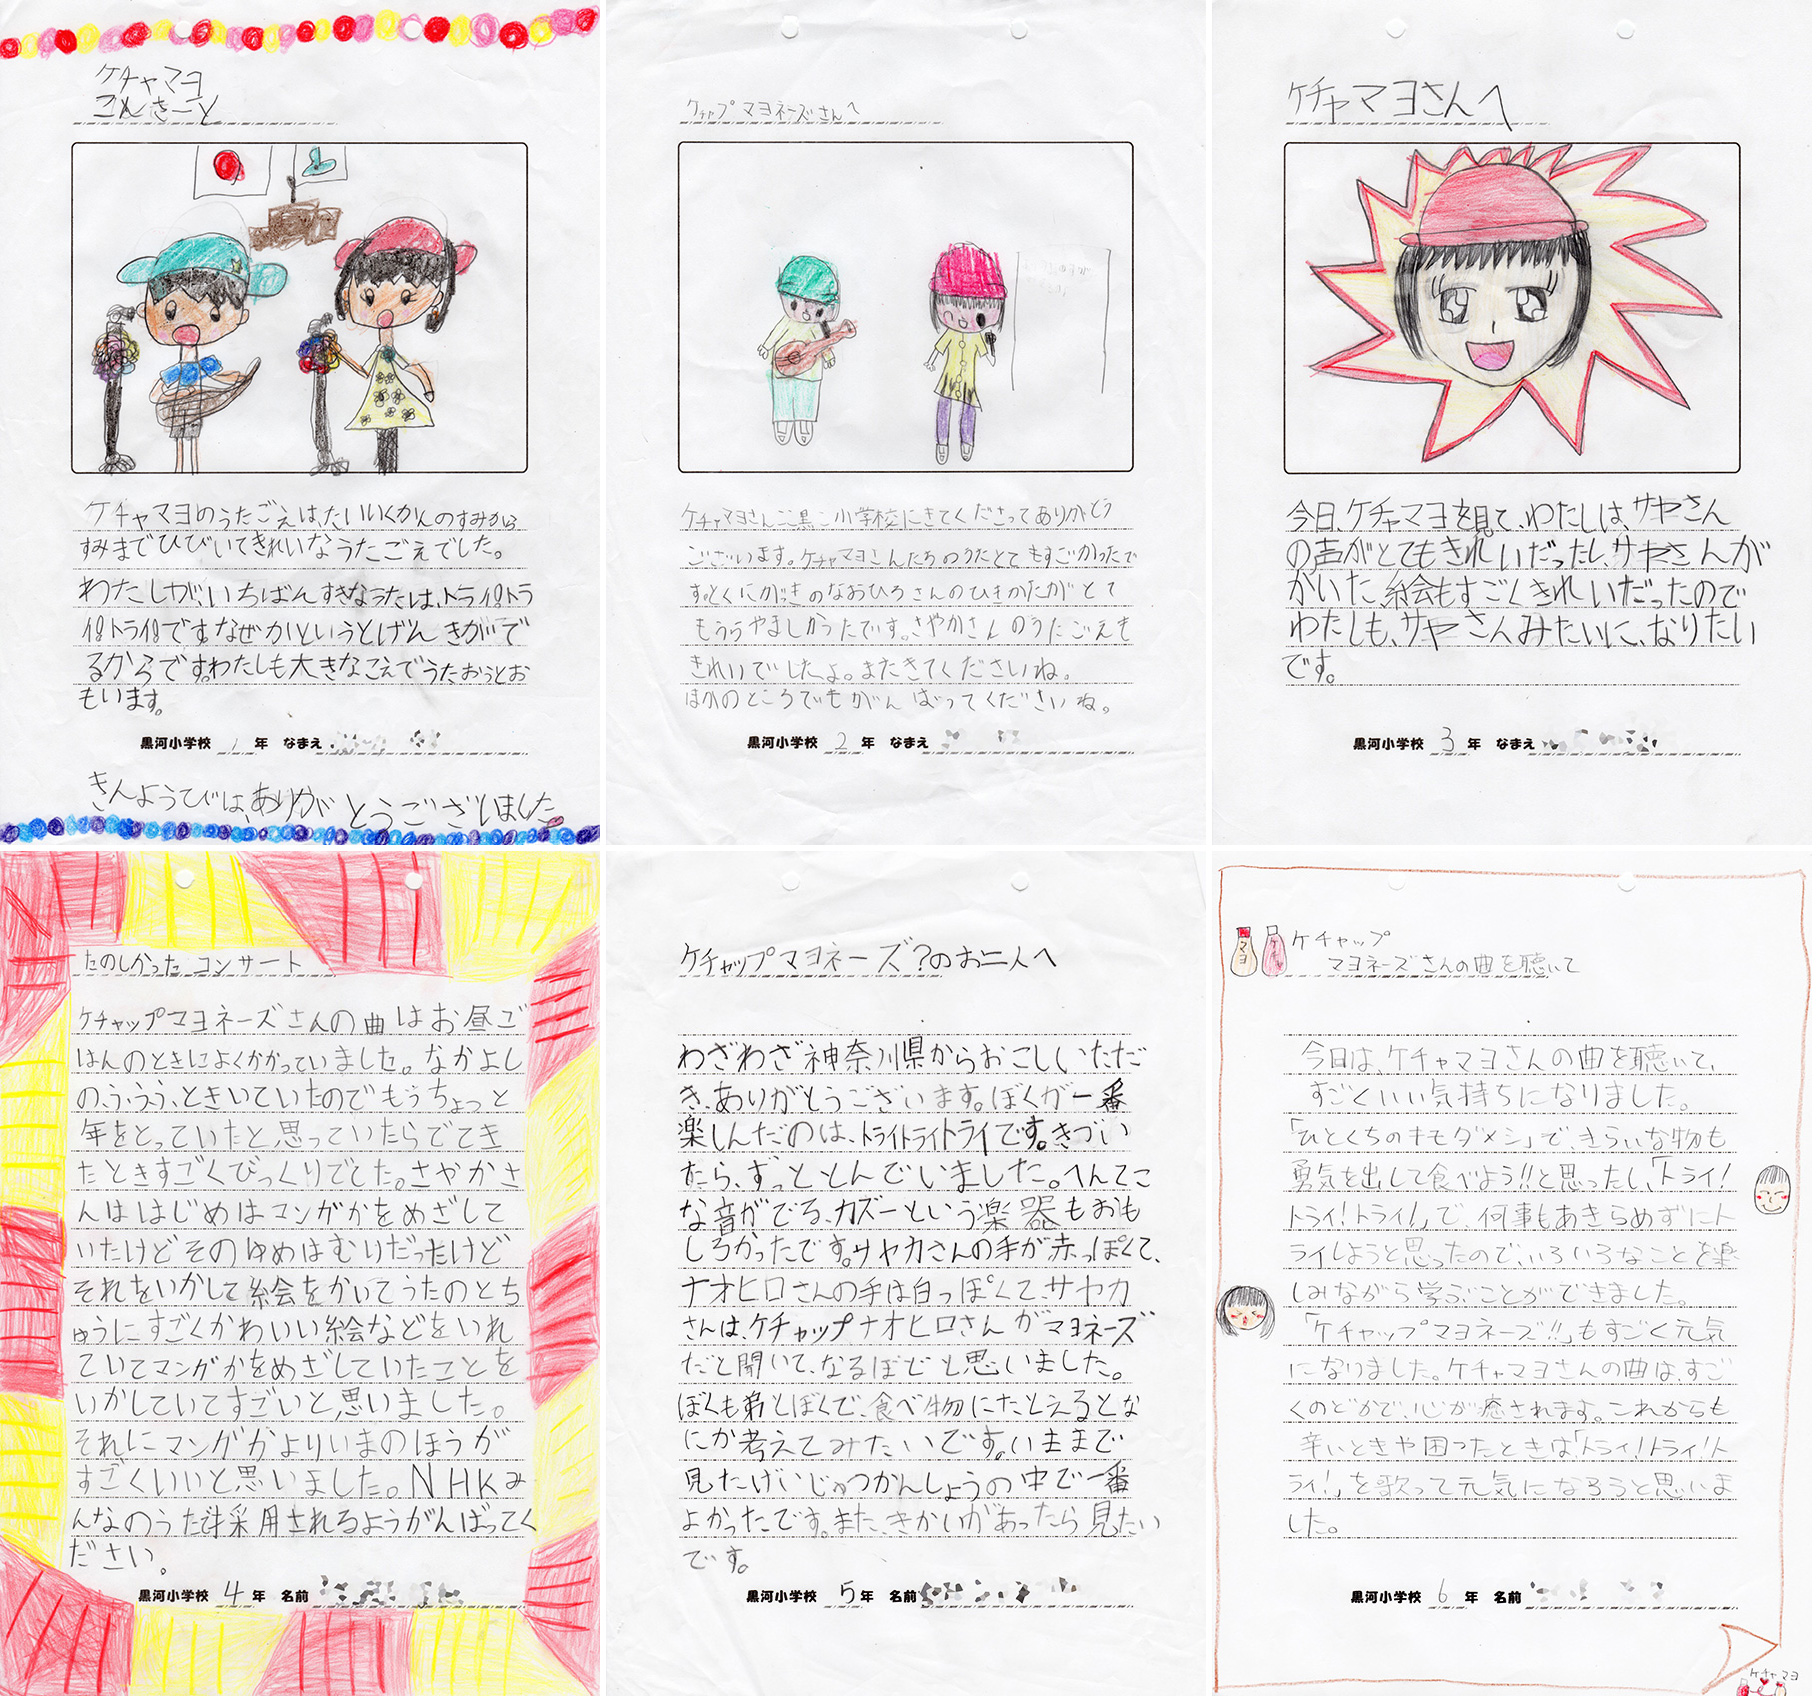 ケチャマヨ
こんさーと
ケチャマヨのうたごえは、たいいくかんのすみから
すみまでひびいてきれいなうたごえでした。
わたしが、いちばんすきなうたは、トライ!トラ
イ!トライ!です。なぜかというとげんきがで
るからです。わたしも大きなこえでうたおうとお
もいます。
黒河小学校 1 年 なまえ
きんようびは、ありがとうございました
ケチャップマヨネーズさんへ
ケチャマヨさんここ黒こ小学校にきてくださってありがとう
ございます。ケチャマヨさんたちのうたとてもすごかったで
す。とくにがっきのなおひろさんのひきかたがとて
もうらやましかったです。さやかさんのうたごえも
きれいでしたよ。またきてくださいね。
ほかのところでもがんばってくださいね。
黒河小学校 2 年 なまえ
ケチャマヨさんへ
今日、ケチャマヨを見て、わたしは、サヤさん
の声がとてもきれいだったし、サヤさんが
かいた絵もすごくきれいだったので
わたしも、サヤさんみたいに、なりたい
です。
黒河小学校 3 年 なまえ
たのしかったコンサート
ケチャップマヨネーズさんの曲はお昼ご
はんのときによくかかっていました。なかよし
の、ふ、うう、ときいていたのでもうちょっと
年をとっていたと思っていたらでてき
たときすごくびっくりでした。さやかさ
んははじめはマンガかをめざして
いたけどそのゆめはむりだったけど
それをいかして絵をかいてうたのとち
ゅうにすごくかわいい絵などをいれ
ていてマンガかをめざしていたことを
いかしていてすごいと思いました。
それにマンガかよりいまのほうが
すごくいいと思いました。NHKみ
んなのうた採用されるようがんばってく
ださい。
黒河小学校 4 年 名前
ケチャップマヨネーズ?のお二人へ
わざわざ神奈川県からおこしいただ
き、ありがとうございます。ぼくが一番
楽しんだのは、トライトライトライです。きづい
たら、ずっととんでいました。へんてこ
な音がでる、カズーという楽器もおも
しろかったです。サヤカさんの手が赤っぽくて、
ナオヒロさんの手は白っぽくて、サヤカ
さんは、ケチャップナオヒロさんがマヨネーズ
だと聞いて、なるほどと思いました。
ぼくも弟とぼくで、食べ物にたとえるとな
にか考えてみたいです。いままで
見たげいじゅつかんしょうの中で一番
よかったです。また、きかいがあったら見たい
です。
黒河小学校 5 年 名前
マヨ
ケチャップ
マヨネーズさんの曲を聴いて
今日は、ケチャマヨさんの曲を聴いて、
すごくいい気持ちになりました。
「ひとくちのキモダメシ」で、きらいな物も
勇気を出して食べよう!!と思ったし、「トライ!
トライ!トライ!」で、何事もあきらめずにト
ライしようと思ったので、いろいろなことを楽
しみながら学ぶことができました。
「ケチャップマヨネーズ!!」もすごく元気
になりました。ケチャマヨさんの曲は、すご
くのどかで、心が癒されます。これからも
辛いときや困ったときは「トライ!トライ!ト
ライ!」を歌って元気になろうと思いま
した。
黒河小学校 6 年 名前
ケチャマヨ